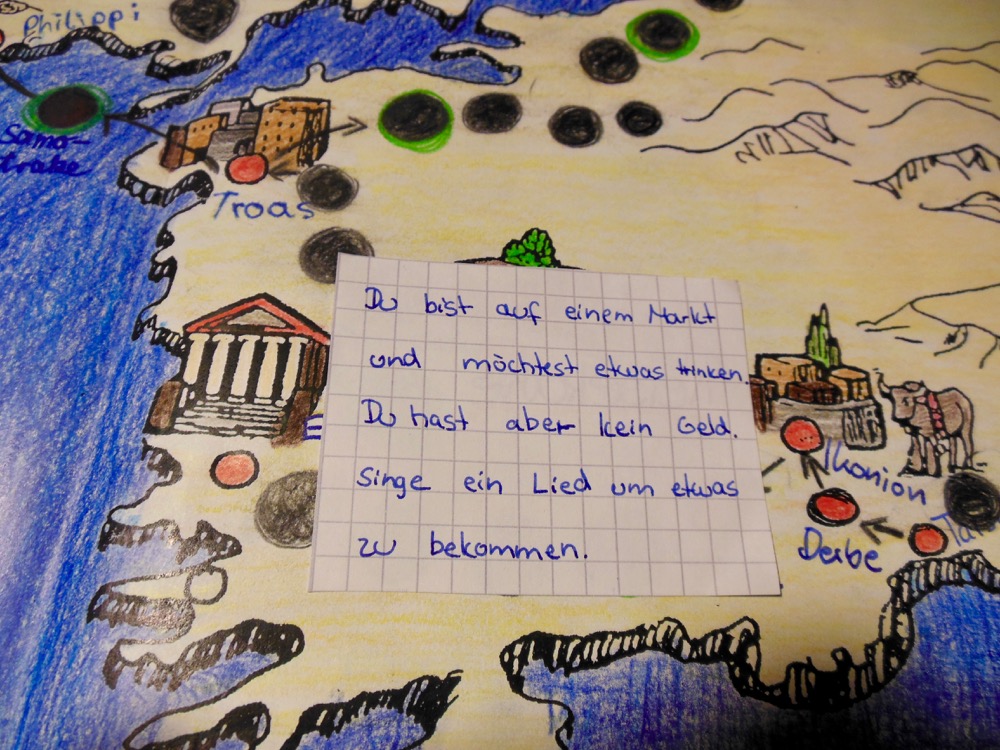 Philippi
Samo-
trake
Troas
Du bist auf einem Markt
und möchtest etwas trinken.
Du hast aber kein Geld.
Singe ein Lied um etwas
zu bekommen.
E
Ikonion
Derbe
Ta